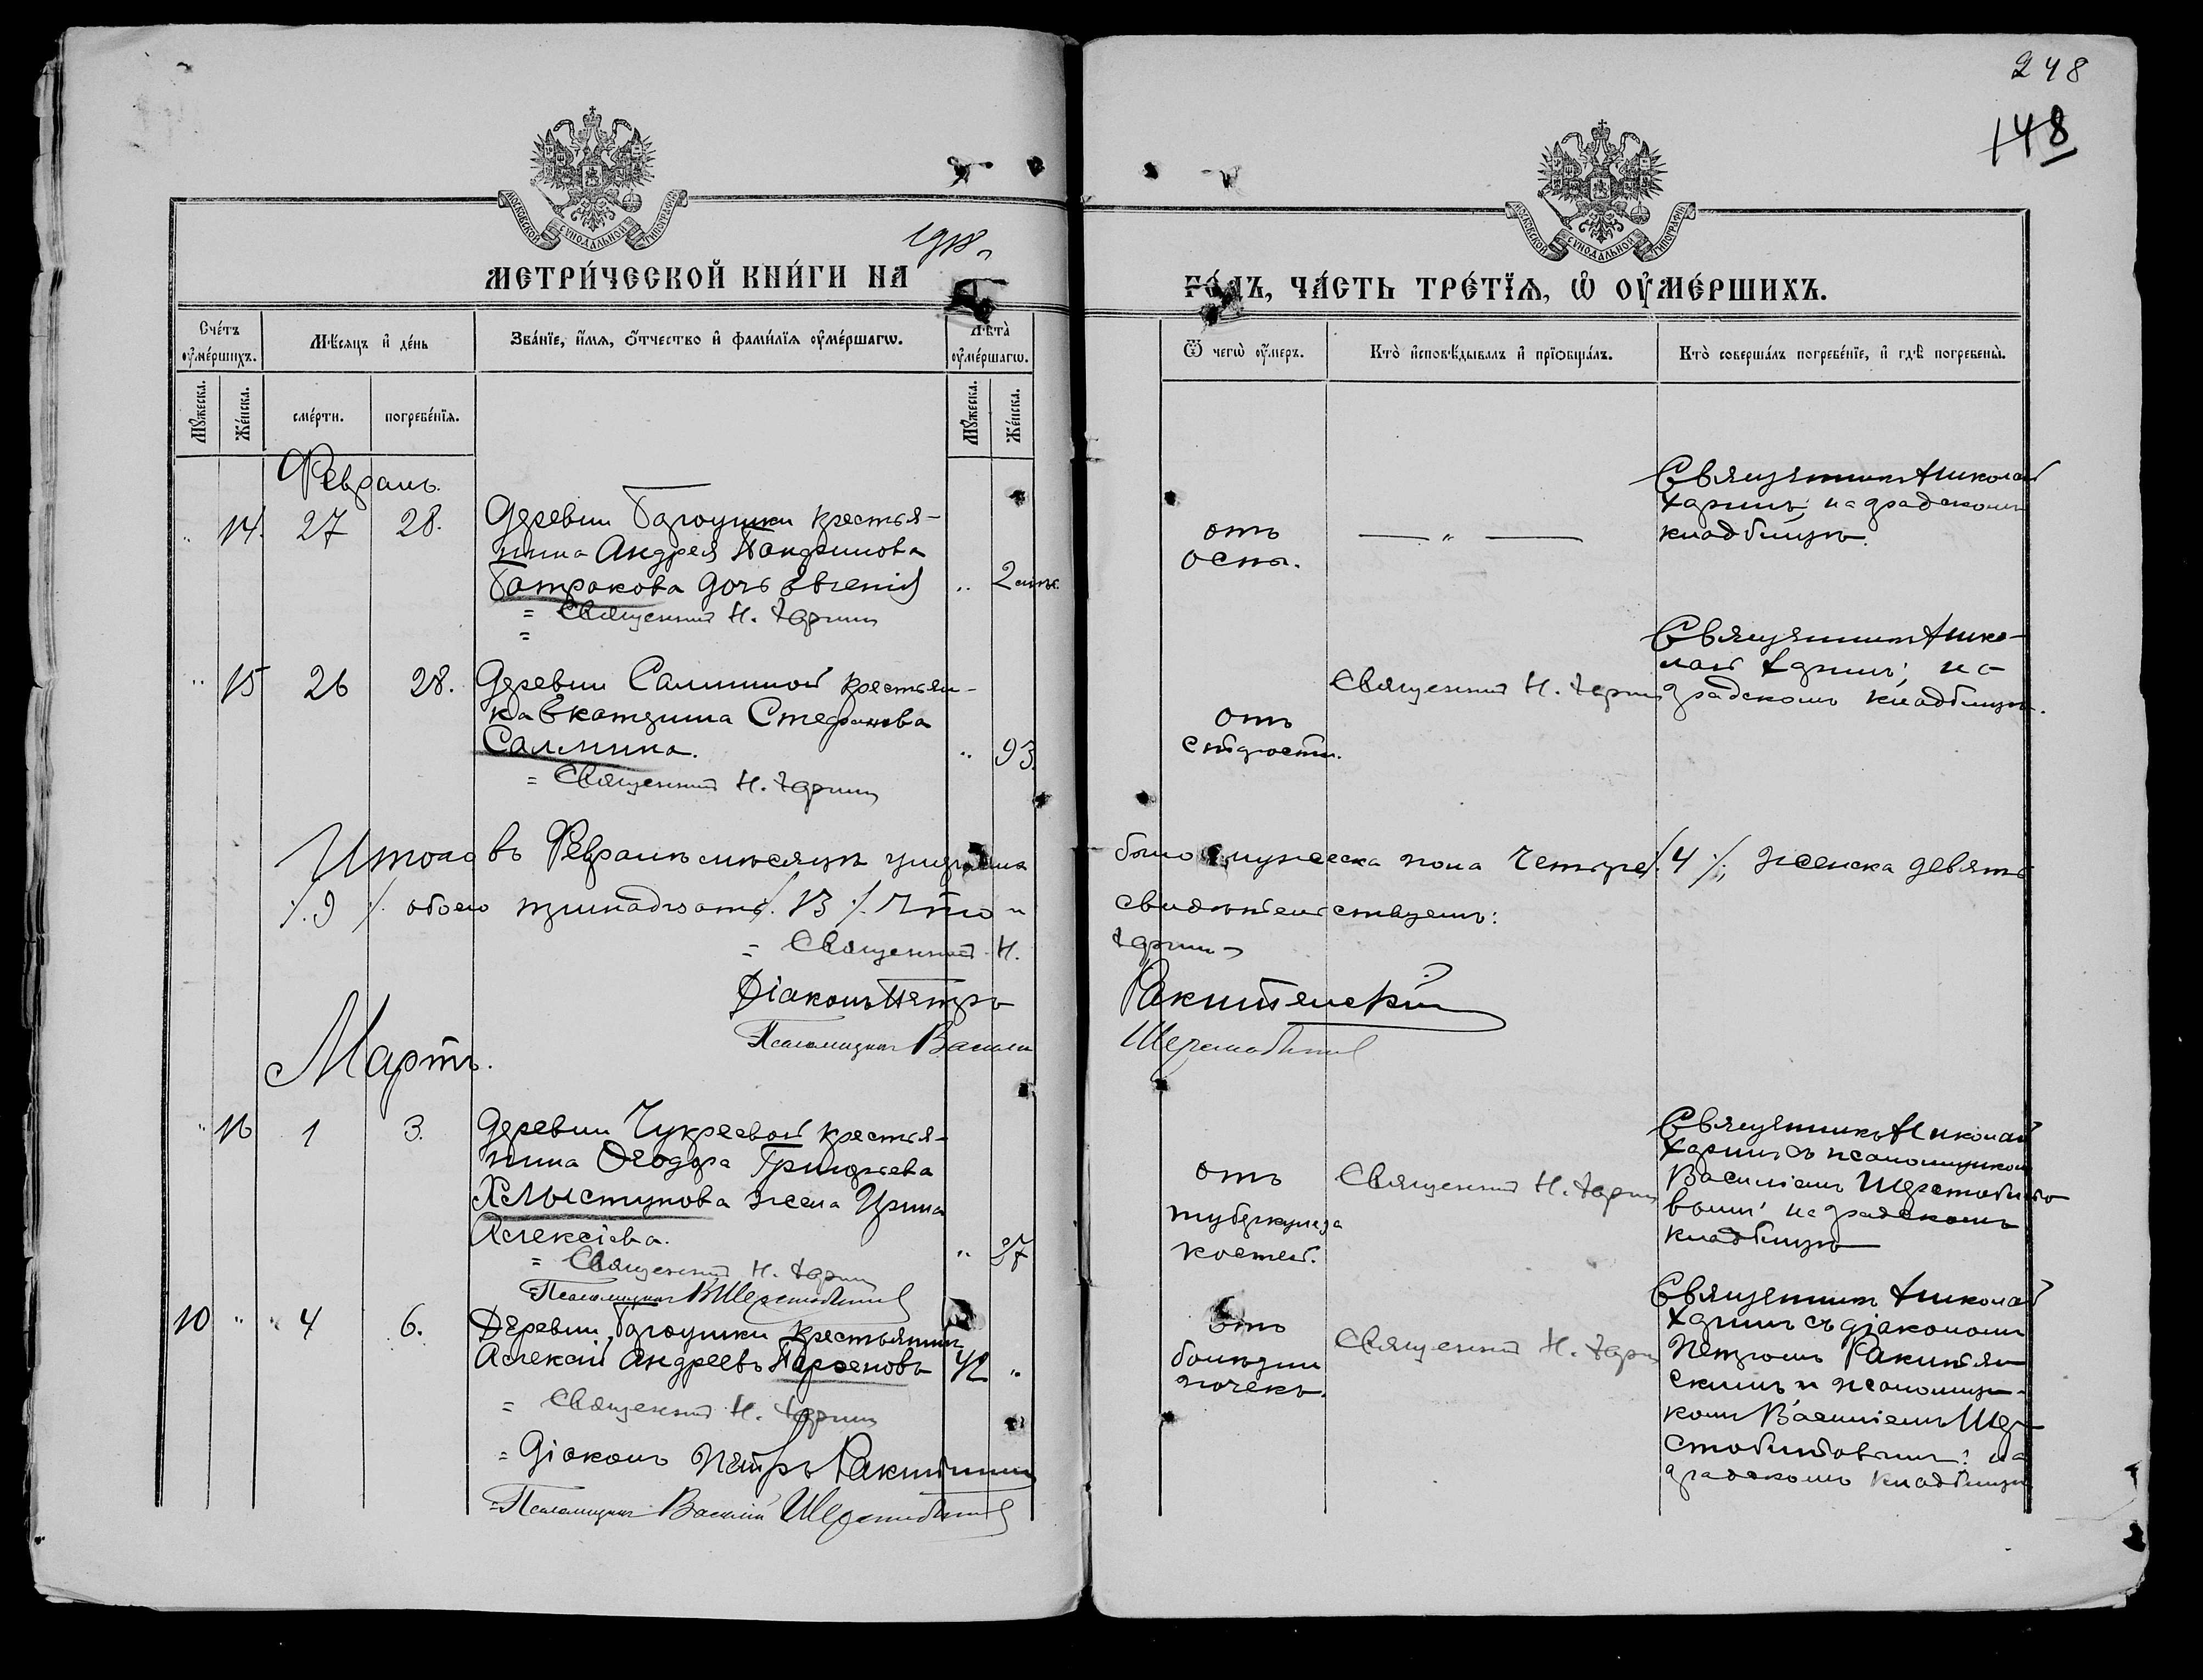 248
148
МОСКОВСКОЙ СѴНОДАЛЬНОЙ ТИПОГРАФІИ
МОСКОВСКОЙ СѴНОДАЛЬНОЙ ТИПОГРАФІИ
МЕТРИ́ЧЕСКОЙ КНИ́ГИ НА
ГО́ДЪ, ЧА́СТЬ ТРЕ́ТЇѦ, Ѡ҆ ОУ҆МЕ́РШИХЪ.
Сче́тъ оу҆ме́ршихъ.
Мѣ́сяцъ и҆ де́нь
Зва́нїе, и҆́мѧ, ѻ҆́тчество и҆ фами́лїѧ оу҆ме́ршагѡ.
Лѣта̀ оу҆ме́ршагѡ.
Ѿ чегѡ̀ оу҆́меръ.
Кто̀ и҆сповѣ́дывалъ и҆ прїѡбща́лъ.
Кто̀ соверша́лъ погребе́нїе, и҆ гдѣ̀ погребены̀.
Мꙋ́жеска.
Же́нска.
сме́рти.
погребе́нїѧ.
Мꙋ́жеска.
Же́нска.
Февраль.
14. 27 28.
Деревни крестья-
нина Андрея
Батракова дочь Евгенія
2
= Священникъ Н. Ларинъ
отъ
оспы.
Священникъ Николай
Ларинъ; на градскомъ
кладбищѣ.
15 26 28.
Деревни Салминой крестьян-
ка Екатерина Стефанова
Салмина.
93.
= Священникъ Н. Ларинъ
отъ
старости.
Священникъ Н. Ларинъ
Священникъ Нико-
лай Ларинъ; на
градскомъ кладбищѣ.
Итого въ Февралѣ мѣсяцѣ умершихъ было мужеска пола четыре /. 4 /., женска девять
/. 9 /. обоего тринадцать /. 13 /. Что свидѣтельствуемъ:
= Священникъ Н. Ларинъ
Діаконъ Петръ Ракитянскій
Псаломщикъ Василій Шерстобитовъ
Мартъ.
16 1 3.
Деревни Чукреевой крестья-
нина Ѳеодора Григорьева
Хлыстунова жена Ирина
Алексіева.
27
= Священникъ Н. Ларинъ
Псаломщикъ В Шерстобитовъ
отъ
туберкулеза
костей.
Священникъ Н. Ларинъ
Священникъ Николай
Ларинъ съ псаломщикомъ
Василіемъ Шерстобито-
вымъ; на градскомъ
кладбищѣ
10 4 6.
Деревни крестьянинъ
Алексій Андреевъ Парѳеновъ
42
= Священникъ Н. Ларинъ
= Діаконъ Петръ Ракитянскій
= Псаломщикъ Василій Шерстобитовъ
отъ
болѣзни
почекъ.
Священникъ Н. Ларинъ
Священникъ Николай
Ларинъ съ діакономъ
Петромъ Ракитян-
скимъ и псаломщи-
комъ Василіемъ Шер-
стобитовымъ; на
градскомъ кладбищѣ